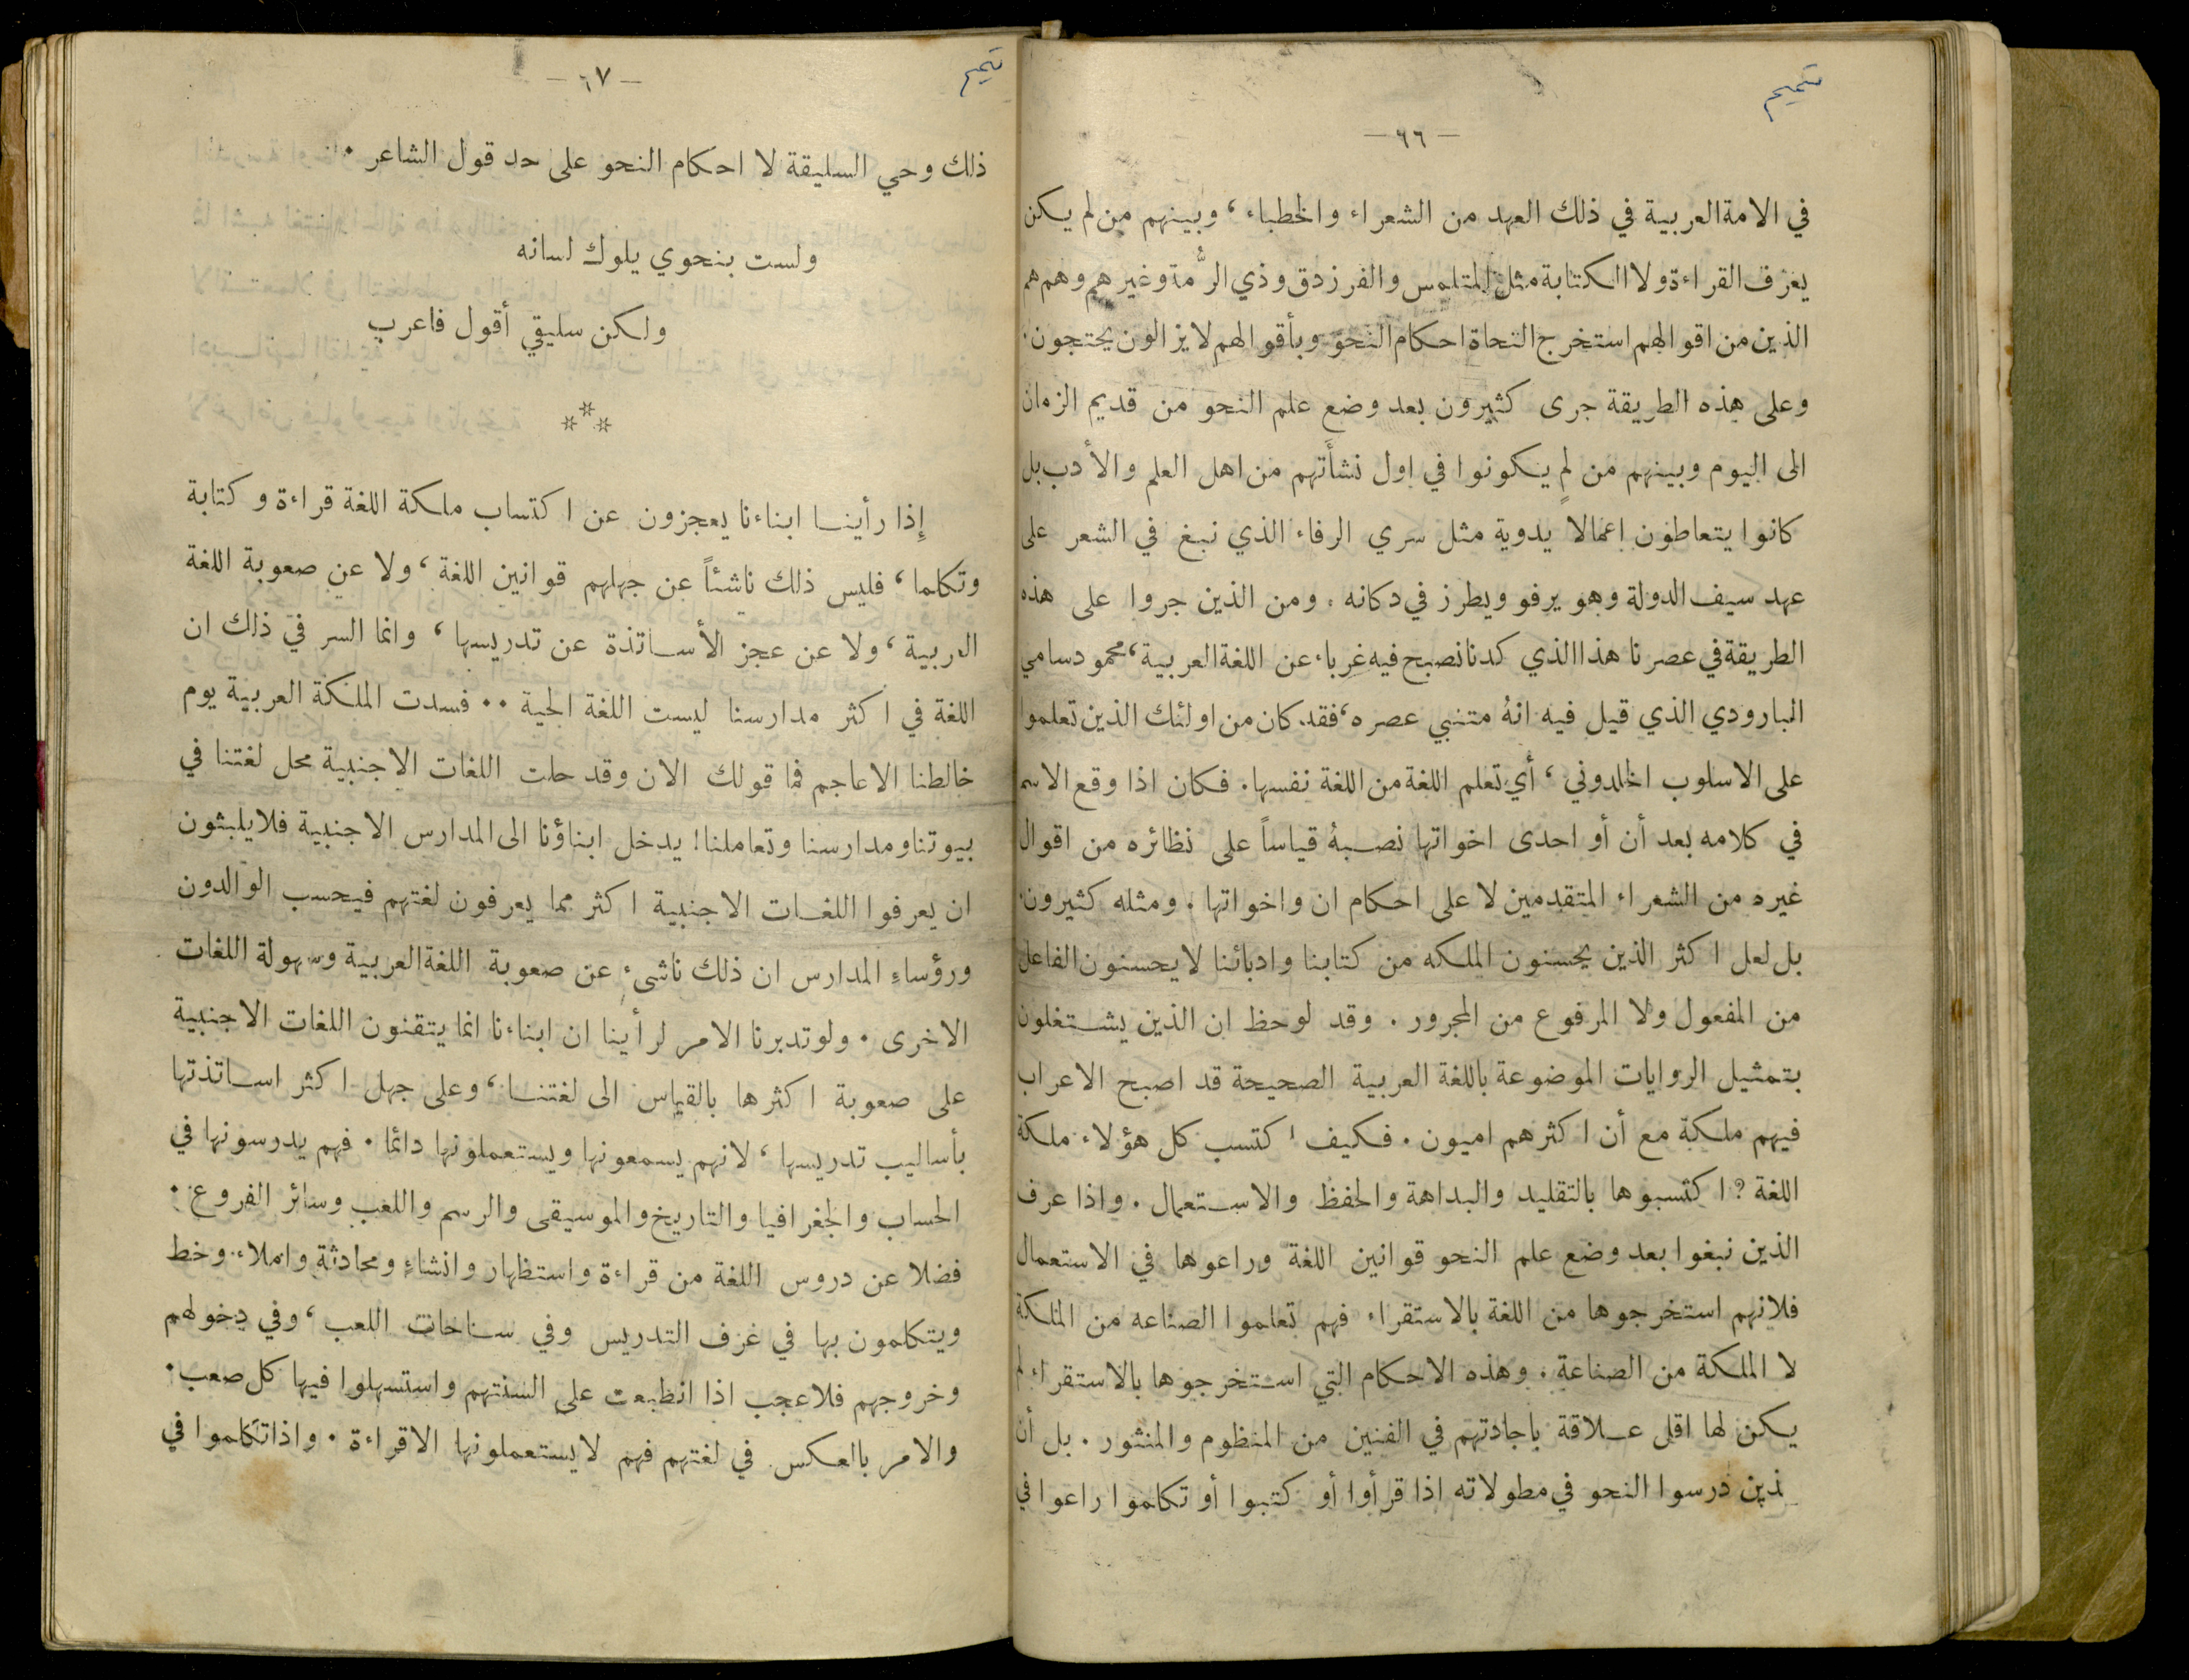 تميم
— ٦٦ —
في الامة العربية في ذلك العهد من الشعراء والخطباء ، وبينهم من لم يكن
يعرف القراءة ولا الكتابة مثل المتلمس والفرزدق وذي الرُّمة وغيرهم وهم هم
الذين من اقوالهم استخرج النحاة احكام النحو وبأقوالهم لا يزالون يحتجون .
وعلى هذه الطريقة جرى كثيرون بعد وضع علم النحو من قديم الزمان
الى اليوم وبينهم من لم يكونوا في اول نشأتهم من اهل العلم والأدب بل
كانوا يتعاطون اعمالا يدوية مثل سري الرفاء الذي نبغ في الشعر على
عهد سيف الدولة وهو يرفو ويطرز في دكانه . ومن الذين جروا على هذه
الطريقة في عصرنا هذا الذي كدنا نصبح فيه غرباء عن اللغة العربية ، محمود سامي
البارودي الذي قيل فيه انهُ متنبي عصره ، فقد كان من اولئك الذين تعلموا
على الاسلوب الخلدوني ، أي تعلم اللغة من اللغة نفسها . فكان اذا وقع الاسم
في كلامه بعد أن أو احدى اخواتها نصبهُ قياساً على نظائره من اقوال
غيره من الشعراء المتقدمين لا على احكام ان واخواتها . ومثله كثيرون .
بل لعل اكثر الذين يحسنون الملكه من كتابنا وادبائنا لا يحسنون الفاعل
من المفعول ولا المرفوع من المجرور . وقد لوحظ ان الذين يشتغلون
بتمثيل الروايات الموضوعة باللغة العربية الصحيحة قد اصبح الاعراب
فيهم ملكة مع أن اكثرهم اميون . فكيف اكتسب كل هؤلاء ملكة
اللغة ? اكتسبوها بالتقليد والبداهة والحفظ والاستعمال . واذا عرف
الذين نبغوا بعد وضع علم النحو قوانين اللغة وراعوها في الاستعمال
فلانهم استخرجوها من اللغة بالاستقراء فهم تعلموا الصناعه من الملكة
لا الملكة من الصناعة . وهذه الاحكام التي استخرجوها بالاستقراء لم
يكن لها اقل علاقة باجادتهم في الفنين من المنظوم والمنثور . بل أن
لذين درسوا النحو في مطولاته اذا قرأوا أو كتبوا أو تكلموا راعوا في
تميم
— ٦٧ —
ذلك وحي السليقة لا احكام النحو على حد قول الشاعر .
ولست بنحوي يلوك لسانه
ولكن سليقي أقول فاعرب
***
إِذا رأينا ابناءنا يعجزون عن اكتساب ملكة اللغة قراءة وكتابة
وتكلما ، فليس ذلك ناشئاً عن جهلهم قوانين اللغة ، ولا عن صعوبة اللغة
العربية ، ولا عن عجز الأساتذة عن تدريسها ، وانما السر في ذلك ان
اللغة في اكثر مدارسنا ليست اللغة الحية .. فسدت الملكة العربية يوم
خالطنا الاعاجم فما قولك الان وقد حلت اللغات الاجنبية محل لغتنا في
بيوتنا ومدارسنا وتعاملنا ! يدخل ابناؤنا الى المدارس الاجنبية فلا يلبثون
ان يعرفوا اللغات الاجنبية اكثر مما يعرفون لغتهم فيحسب الوالدون
ورؤساءِ المدارس ان ذلك ناشىء عن صعوبة اللغة العربية وسهولة اللغات
الاخرى . ولو تدبرنا الامر لرأينا ان ابناءنا انما يتقنون اللغات الاجنبية
على صعوبة اكثرها بالقياس الى لغتنا ، وعلى جهل اكثر اساتذتها
بأساليب تدريسها ، لانهم يسمعونها ويستعملونها دائما . فهم يدرسونها في
الحساب والجغرافيا والتاريخ والموسيقى والرسم واللعب وسائر الفروع .
فضلا عن دروس اللغة من قراءة واستظهار وانشاءٍ ومحادثة واملاء وخط
ويتكلمون بها في غرف التدريس وفي ساحات اللعب ، وفي دخولهم
وخروجهم فلا عجب اذا انطبعت على السنتهم واستسهلوا فيها كل صعب .
والامر بالعكس في لغتهم فهم لا يستعملونها الا قراءة . واذا تكلموا في